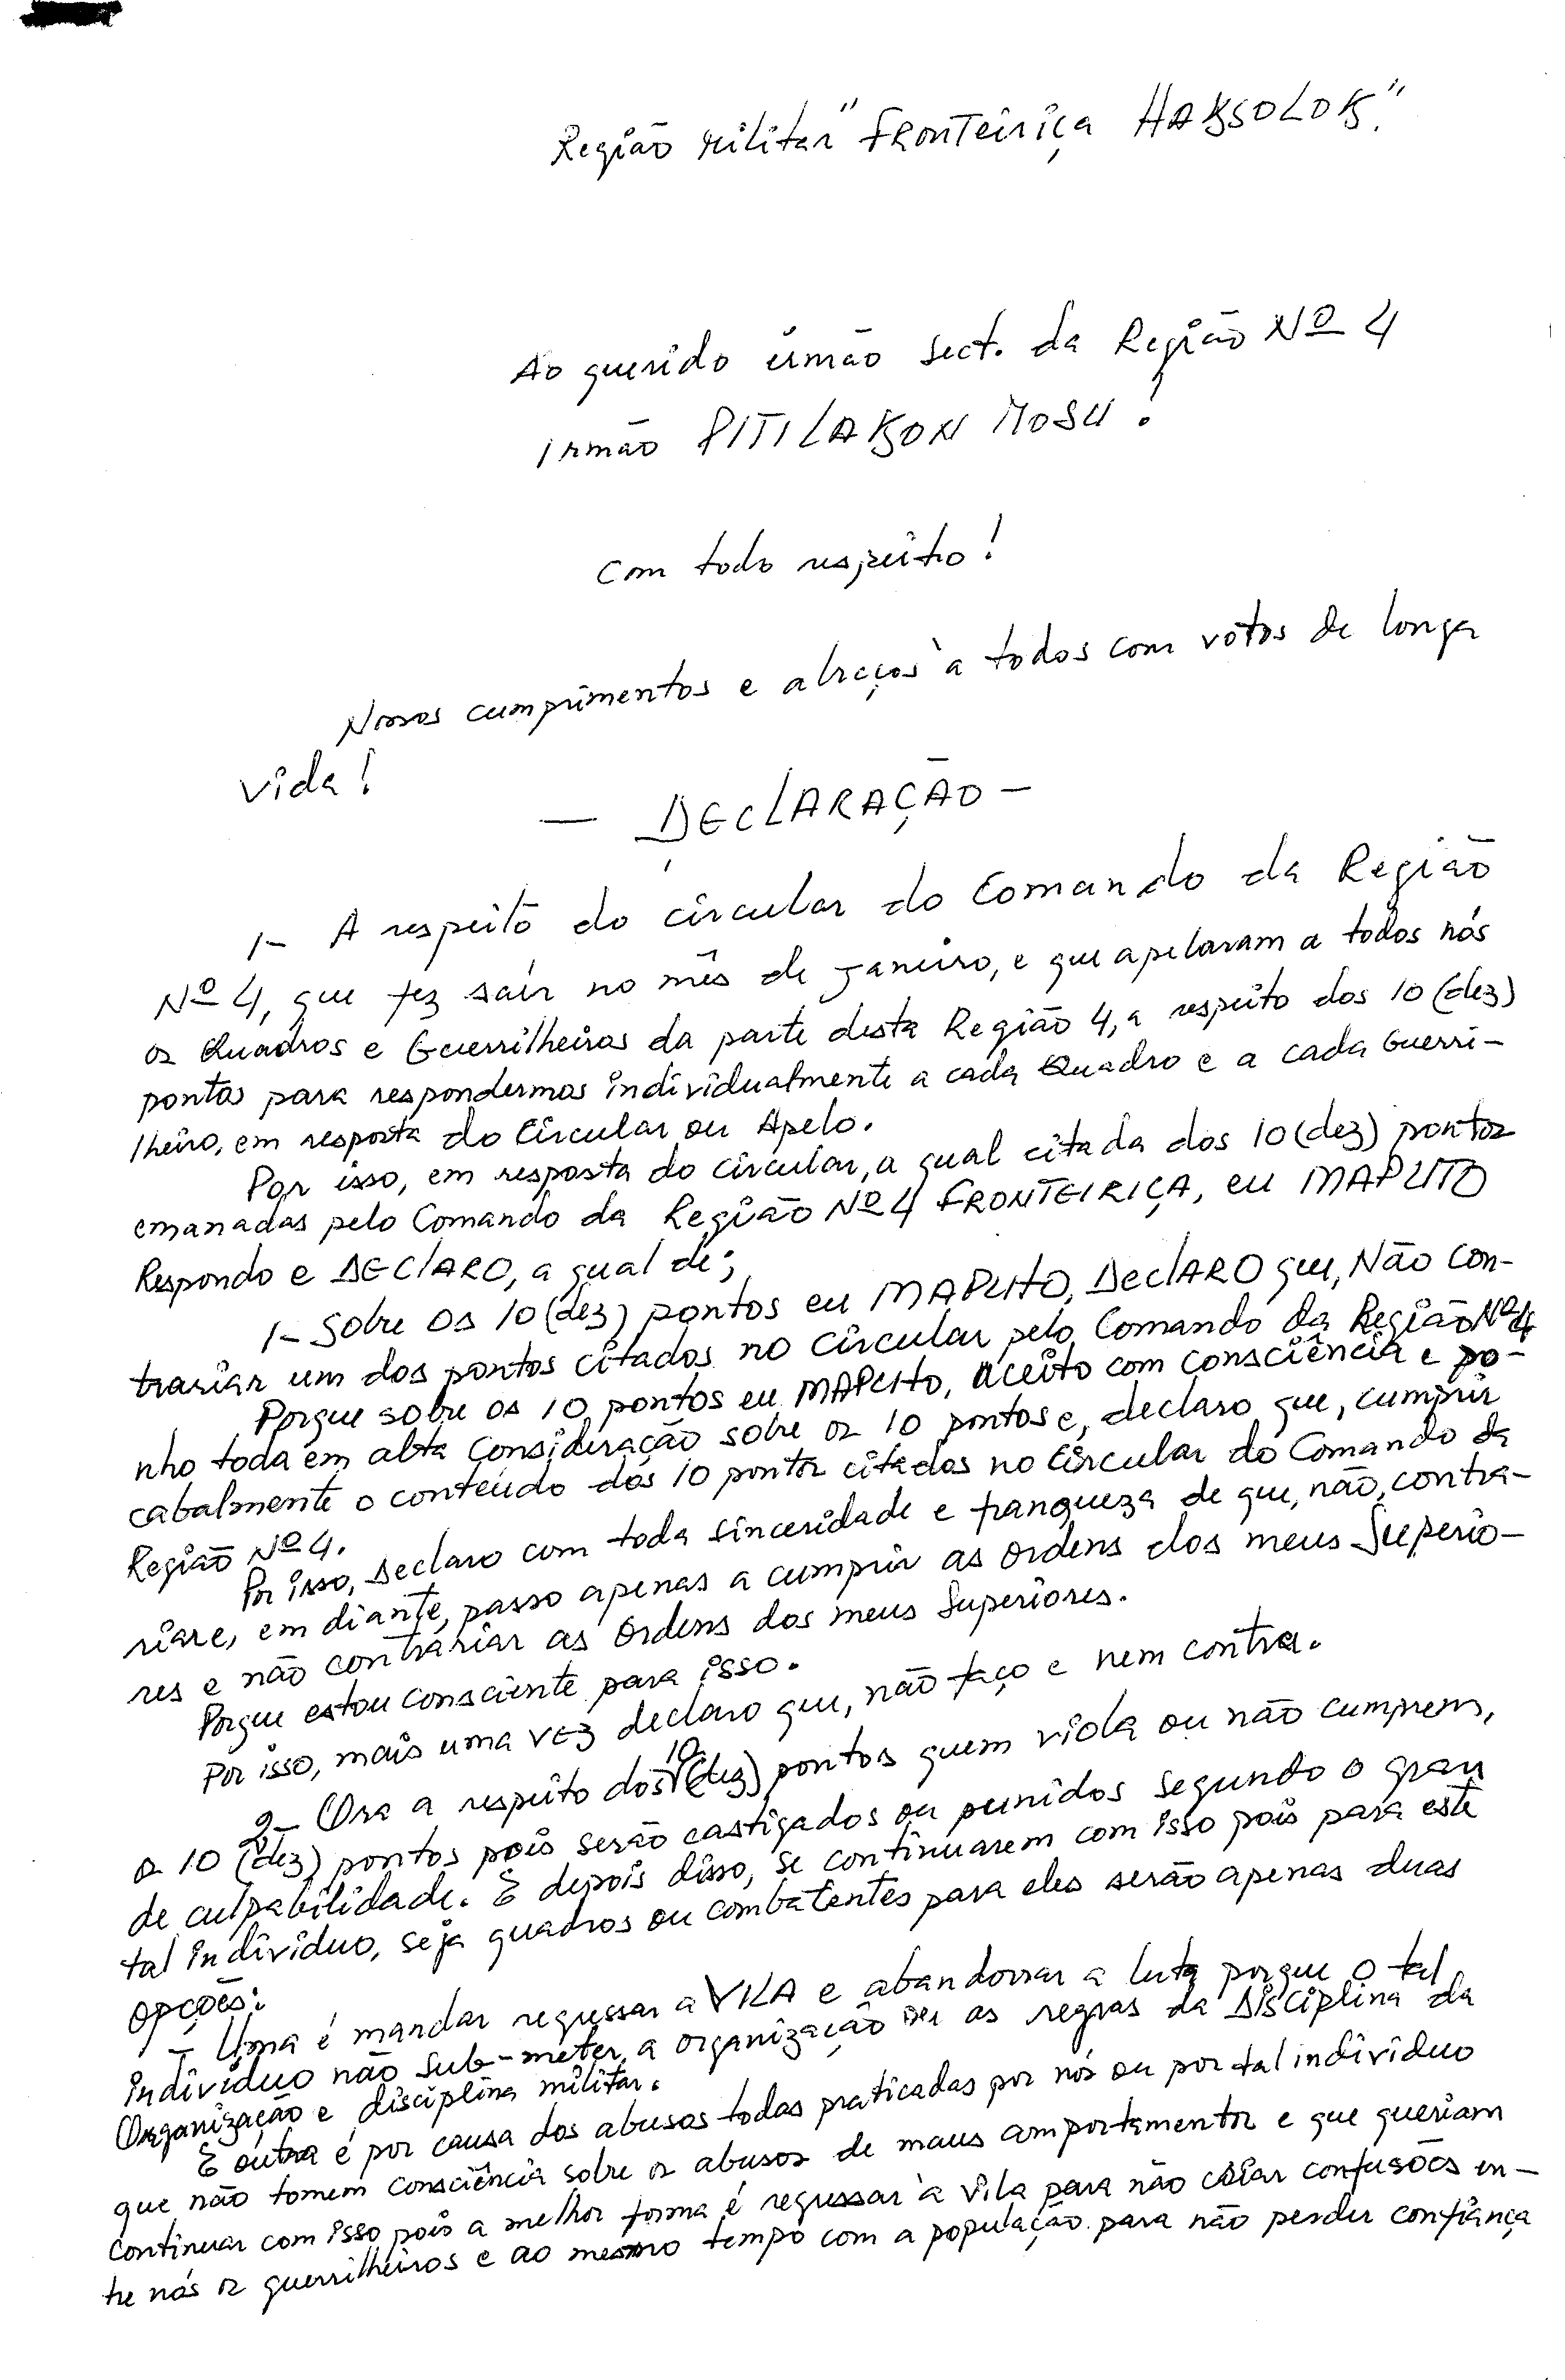 Região Militar "FRONTEIRIÇA HAKSOLOK."
Ao querido irmão Sect. da Região Nº 4
Irmão PITILAKON MOSU!
Com todo respeito!
Nossos cumprimentos e abraços à todos com votos de longa
vida!
— DECLARAÇÃO —
1- A respeito do circular do Comando da Região
Nº 4, que fez sair no mês de Janeiro, e que apelaram a todos nós
os Quadros e Guerrilheiros da parte desta Região 4, a respeito dos 10 (dez)
pontos para respondermos individualmente a cada Quadro e a cada Guerri-
lheiro, em resposta do Circular ou Apelo.
Por isso, em resposta do circular, a qual citada dos 10 (dez) pontos
emanadas pelo Comando da Região Nº 4 FRONTEIRIÇA, eu MAPUTO
Respondo e DEClARO, a qual de;
1- Sobre os 10 (dez) pontos eu MAPUTO, DEClARO que, Não con-
trariar um dos pontos citados no Circular pelo Comando da Região Nº 4
Porque sobre os 10 pontos eu MAPUTO, aceito com consciência e po-
nho toda em alta consideração sobre os 10 pontos e, declaro que, cumprir
cabalmente o conteúdo dos 10 pontos citados no Circular do Comando da
Região Nº 4.
Por isso, Declaro com toda sinceridade e franqueza de que, não, contra-
riare, em diante, passo apenas a cumprir as ordens dos meus Superio-
res e não contrariar as ordens dos meus Superiores.
Porque estou consciente para isso.
Por isso, mais uma vez declaro que, não faço e nem contra.
2- Ora a respeito dos 10 (dez) pontos quem viola ou não cumprem,
os 10 (dez) pontos pois serão castigados ou punidos segundo o grau
de culpabilidade. E depois disso, se continuarem com isso pois para este
tal indivíduo, seja quadros ou combatentes para eles serão apenas duas
opções:
— Uma é mandar regressar a VILA e abandonar a luta porque o tal
indivíduo não sub-meter a organização as regras da Disciplina da
Organização e disciplina militar.
E outra é por causa dos abusos todas praticadas por nós ou por tal indivíduo
que não tomem consciência sobre os abusos de maus comportamentos e que queriam
continuar com isso pois a melhor forma é regressar à Vila para não criar confusões en-
tre nós os guerrilheiros e ao mesmo tempo com a população para não perder confiança